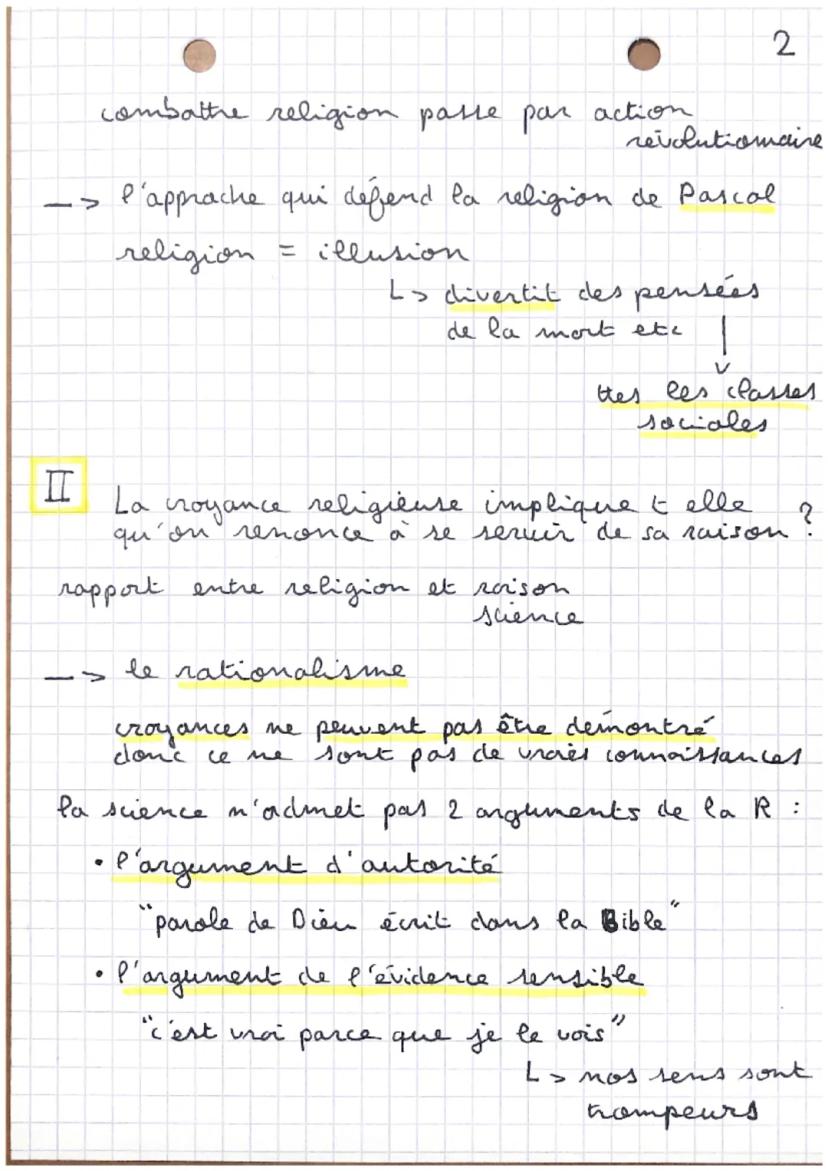 2
combattre religion passe par action
révolutionnaire
—> l'approche qui défend la religion de Pascal
religion = illusion
L> divertit des pensées
de la mort etc
ttes les classes
sociales
II
La croyance religieuse implique t elle
qu'on renonce à se servir de sa raison ?
rapport entre religion et raison
science
—> le rationalisme
croyances ne peuvent pas être démontré
donc ce ne sont pas de vraies connaissances
la science n'admet pas 2 arguments de la R :
• l'argument d'autorité
"parole de Dieu écrit dans la Bible"
• l'argument de l'évidence sensible
"c'est vrai parce que je le vois"
L> nos sens sont
trompeurs